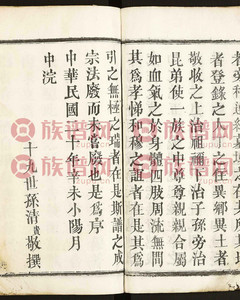 者登錄之人之在異鄉異土者
敬收之上治祖禰下治子孫旁治
昆弟使一族之中尊尊親親合屬
如血氣之於身體四肢周流無間
其爲孝悌和穆之謹者在是其爲
引之無極之瑞者在是斯譜之成
宗法廢而未嘗廢也是爲序
中華民國二十年辛未小陽月
中浣
十九世孫清貴敬撰
族譜網